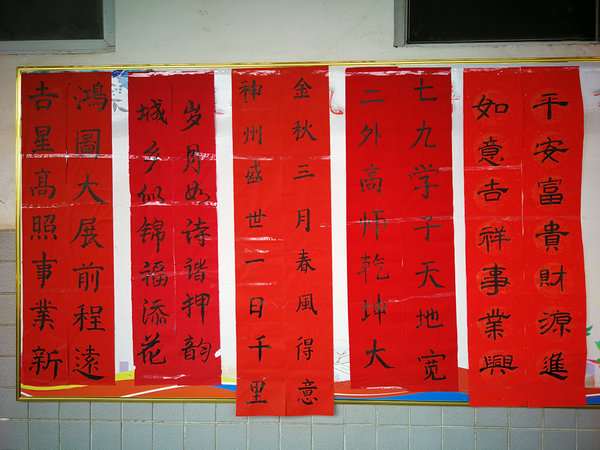 平安富貴財源進
如意吉祥事業興
七九学子天地宽
二外高师乾坤大
金秋三月春風得意
神州盛世一日千里
岁月如诗谐押韵
城乡似锦福添花
鴻圖大展前程遠
吉星高照事業新